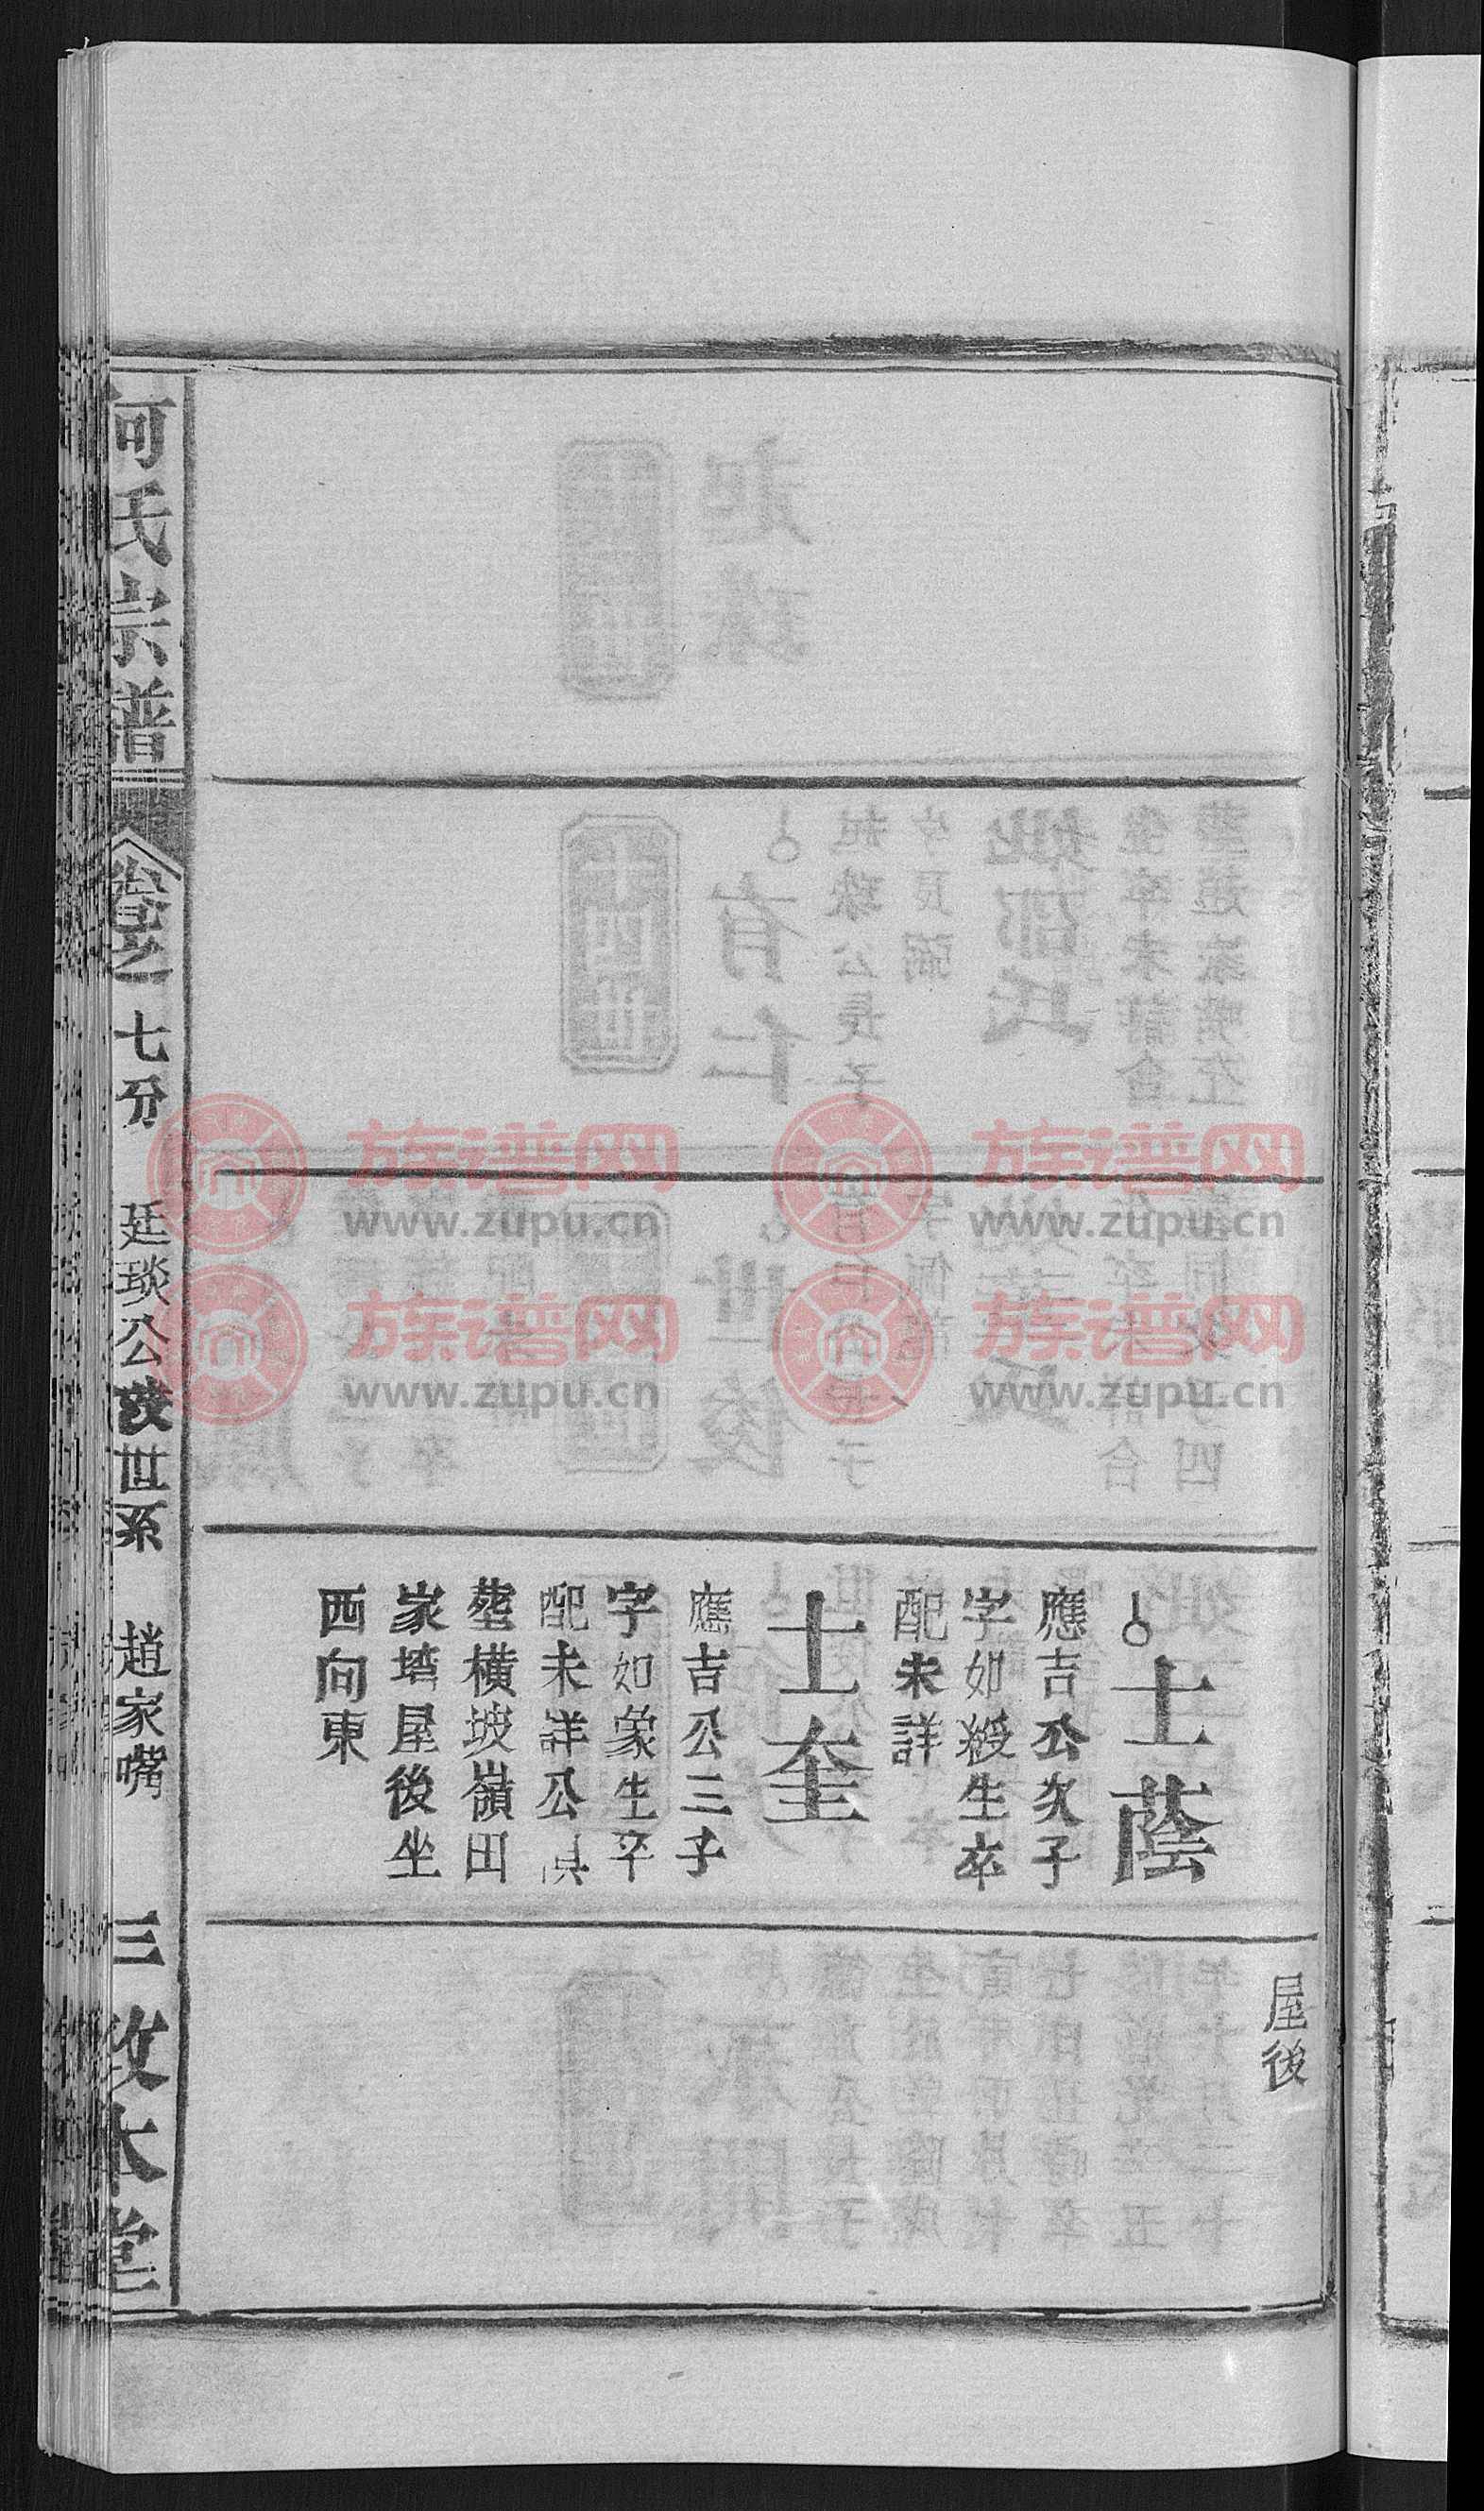 屋後
士蔭
應吉公次子
字如綬生卒
配未詳
士奎
應吉公三子
字如象生卒
配未詳公
塟橫坡嶺田
家塆屋後坐
西向東
何氏宗譜
卷之一
七分
廷琰公
世系
趙家嘴
三
敦本堂
族谱网
www.zupu.cn
族谱网
www.zupu.cn
族谱网
www.zupu.cn
族谱网
www.zupu.cn